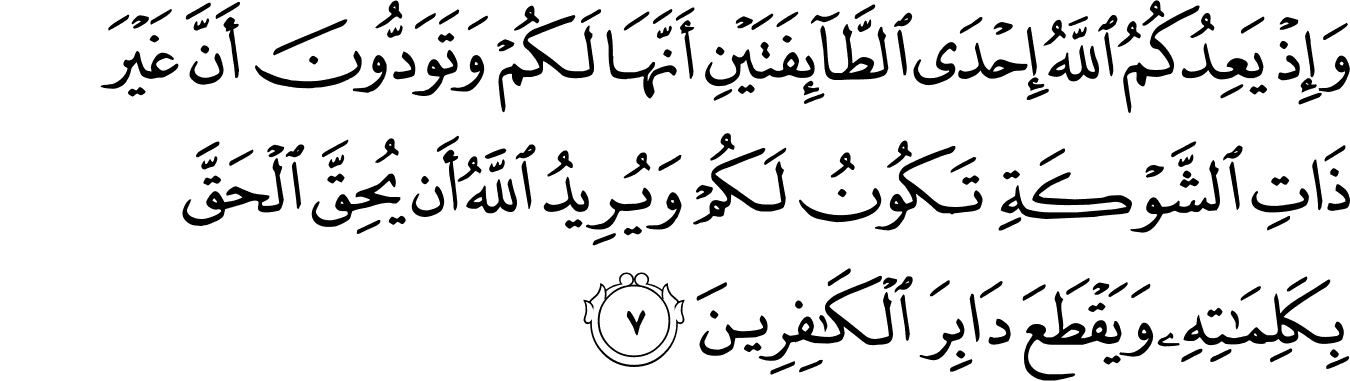 وَإِذْ يَعِدُكُمُ ٱللَّهُ إِحْدَى ٱلطَّآئِفَتَيْنِ أَنَّهَا لَكُمْ وَتَوَدُّونَ أَنَّ غَيْرَ
ذَاتِ ٱلشَّوْكَةِ تَكُونُ لَكُمْ وَيُرِيدُ ٱللَّهُ أَن يُحِقَّ ٱلْحَقَّ
بِكَلِمَـٰتِهِۦ وَيَقْطَعَ دَابِرَ ٱلْكَـٰفِرِينَ ٧